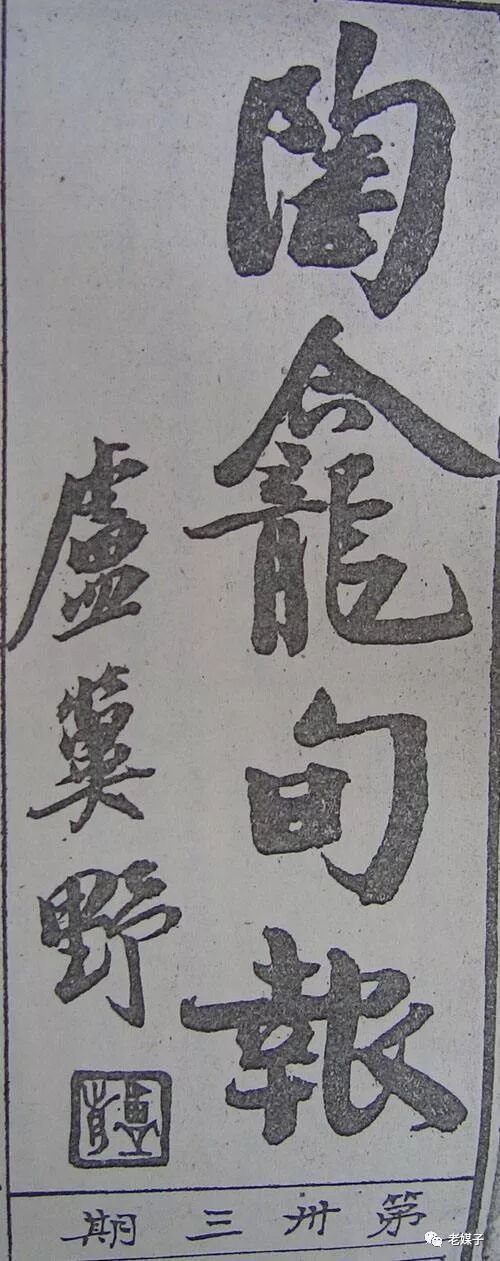 陶龕旬報
盧冀野
第卅三期
老媒子